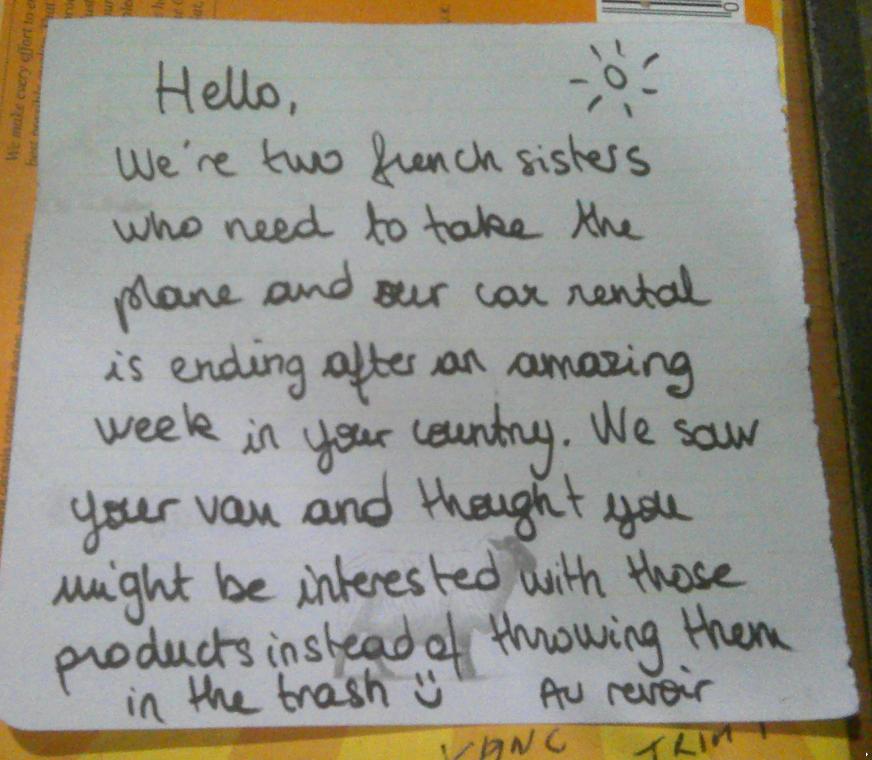 We make every effort to e
Hello,
We're two french sisters
who need to take the
plane and our car rental
is ending after an amazing
week in your country. We saw
your van and thought you
might be interested with those
products instead of throwing them
in the trash Au revoir